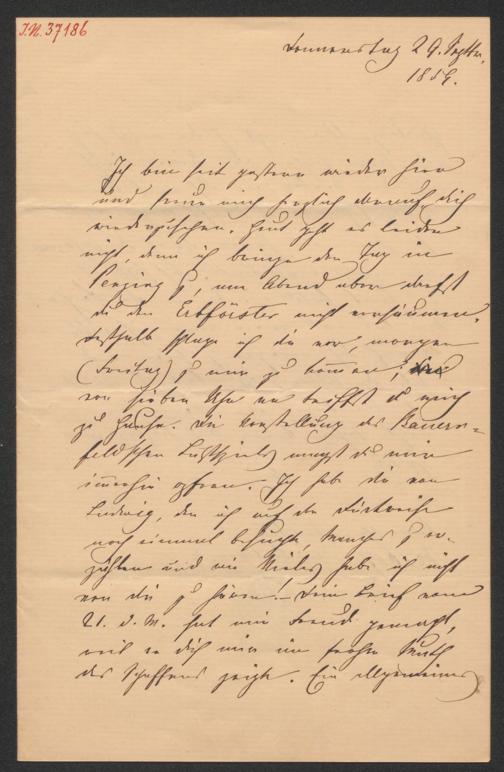 I.N. 37186
Donnerstag 29. Septbr.
1859.
Ich bin seit gestern wieder hier
und freue mich herzlich darauf, dich
wiederzusehen. Heut geht es leider
nicht, denn ich bringe den Tag in
Penzing zu, am Abend aber darfst
du den Erbförster nicht versäumen.
Deshalb schlage ich dir vor, morgen
(Freitag) zu mir zu kommen;
von sieben Uhr an triffst du mich
zu Hause. Die Vorstellung des Bauern-
feld'schen Lustspiels magst du mir
immerhin opfern. Ich habe dir von
Ludwig, den ich auf der Rückreise
noch einmal besuchte, Manches zu er-
zählen und wie Vieles habe ich nicht
von dir zu hören! Dein Brief vom
21. d. M. hat mir Freude gemacht,
weil er dich mir im frohen Muth
des Schaffens zeigte. Ein allgemeines